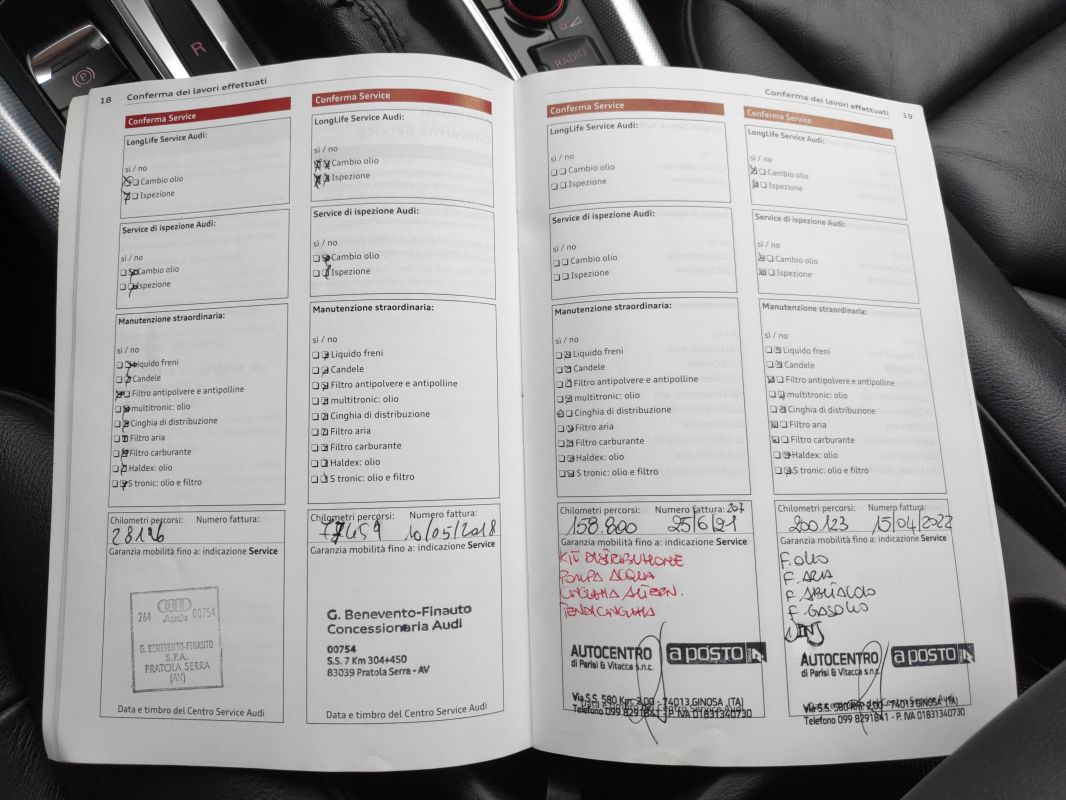 R
P
RADIO
18 Conferma dei lavori effettuati
Conferma Service
LongLife Service Audi:
sì / no
Cambio olio
Ispezione
Service di ispezione Audi:
sì / no
Cambio olio
Ispezione
Manutenzione straordinaria:
sì / no
Liquido freni
Candele
Filtro antipolvere e antipolline
multitronic: olio
Cinghia di distribuzione
Filtro aria
Filtro carburante
Haldex: olio
S tronic: olio e filtro
Chilometri percorsi: Numero fattura:
28126
Garanzia mobilità fino a: indicazione Service
261 Audi 00754
G. BENEVENTO-FINAUTO
S.P.A.
PRATOLA SERRA
(AV)
Data e timbro del Centro Service Audi
Conferma Service
LongLife Service Audi:
sì / no
Cambio olio
Ispezione
Service di ispezione Audi:
sì / no
Cambio olio
Ispezione
Manutenzione straordinaria:
sì / no
Liquido freni
Candele
Filtro antipolvere e antipolline
multitronic: olio
Cinghia di distribuzione
Filtro aria
Filtro carburante
Haldex: olio
S tronic: olio e filtro
Chilometri percorsi: Numero fattura:
77459 10/05/2018
Garanzia mobilità fino a: indicazione Service
G. Benevento-Finauto
Concessionaria Audi
00754
S.S. 7 Km 304+450
83039 Pratola Serra - AV
Data e timbro del Centro Service Audi
Conferma dei lavori effettuati 19
Conferma Service
LongLife Service Audi:
sì / no
Cambio olio
Ispezione
Service di ispezione Audi:
sì / no
Cambio olio
Ispezione
Manutenzione straordinaria:
sì / no
Liquido freni
Candele
Filtro antipolvere e antipolline
multitronic: olio
Cinghia di distribuzione
Filtro aria
Filtro carburante
Haldex: olio
S tronic: olio e filtro
Chilometri percorsi: Numero fattura: 207
158.800 25/6/21
Garanzia mobilità fino a: indicazione Service
KIT DISTRIBUZIONE
POMPA ACQUA
CINGHIA ALTERN.
TENDICINGHIA
AUTOCENTRO
di Parisi & Vitacca s.n.c.
a posto
Via S.S. 580 Km. 2,00 - 74013 GINOSA (TA)
Data e timbro del Centro Service Audi
Telefono 099 8291841 - P. IVA 01831340730
Conferma Service
LongLife Service Audi:
sì / no
Cambio olio
Ispezione
Service di ispezione Audi:
sì / no
Cambio olio
Ispezione
Manutenzione straordinaria:
sì / no
Liquido freni
Candele
Filtro antipolvere e antipolline
multitronic: olio
Cinghia di distribuzione
Filtro aria
Filtro carburante
Haldex: olio
S tronic: olio e filtro
Chilometri percorsi: Numero fattura:
200123 15/04/2022
Garanzia mobilità fino a: indicazione Service
F. OLIO
F. ARIA
F. ABITACOLO
F. GASOLIO
AUTOCENTRO
di Parisi & Vitacca s.n.c.
a posto
Via S.S. 580 Km. 2,00 - 74013 GINOSA (TA)
Data e timbro del Centro Service Audi
Telefono 099 8291841 - P. IVA 01831340730